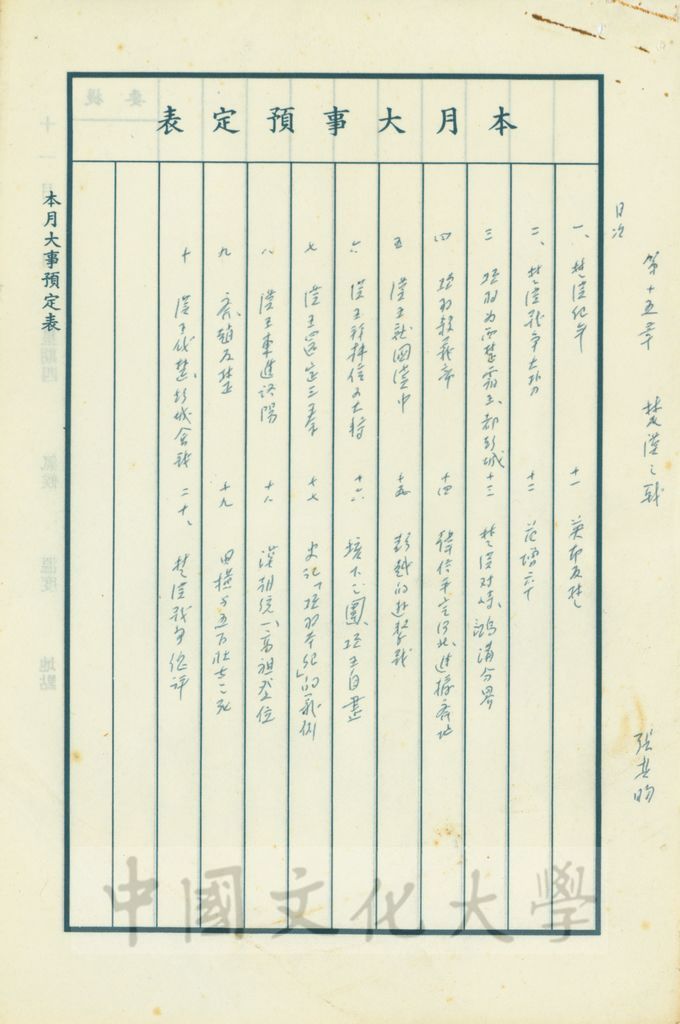 第十五章 楚漢之戰 張其昀
目次
本月大事預定表
一、楚漢紀年 十一 英布反楚
二、楚漢戰爭大勢 十二 范增之卒
三 項羽為西楚霸王、都彭城 十三 楚漢對峙、鴻溝分界
四 項羽殺義帝 十四 韓信平定河北、進據齊地
五 漢王就國漢中 十五 彭越的遊擊戰
六 漢王拜韓信為大將 十六 垓下之圍、項王自盡
七 漢王還定三秦 十七 史記「項羽本紀」的義例
八 漢王東進洛陽 十八 漢朝統一、高祖登位
九 齊、趙反楚 十九 田橫与五百壯士之死
十 漢王伐楚、彭城會戰 二十、楚漢戰爭總評
本月大事預定表
中國文化大學